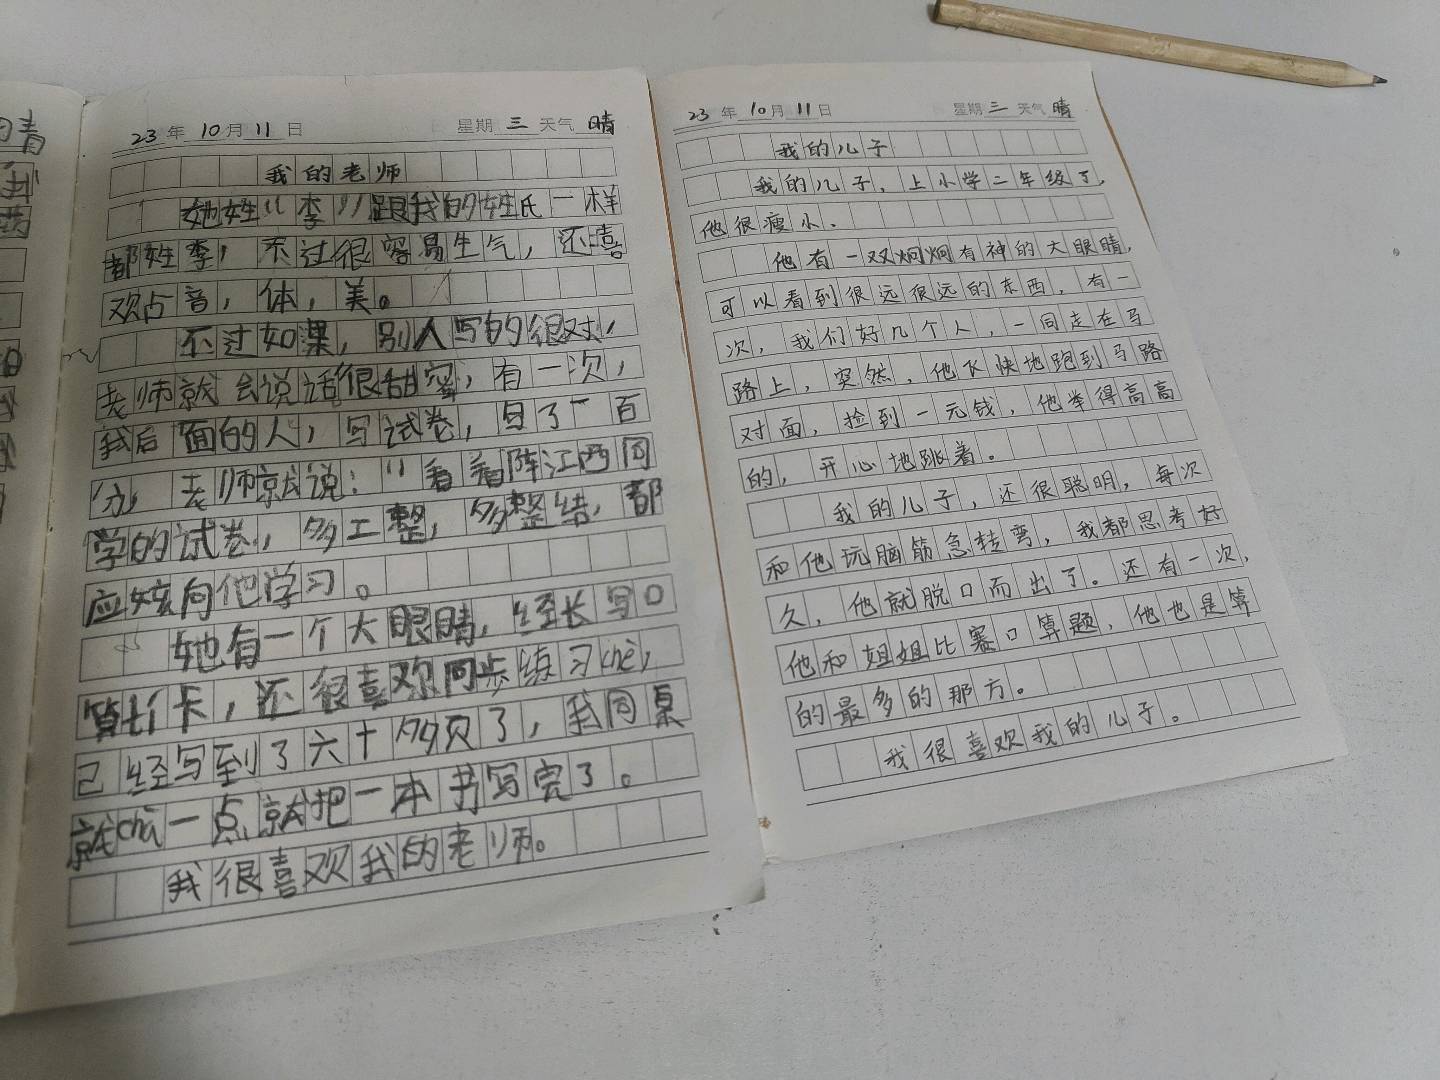 23 年 10 月 11 日 星期 三 天气 晴
我的老师
她姓“李”跟我的姓氏一样
都姓李，不过很容易生气，还喜
欢占音，体，美。
不过如果，别人写的很对，
老师就会说话很甜蜜，有一次，
我后面的人，写试卷，写了一百
分，老师就说：“看着阵江西同
学的试卷，多工整，多整结，都
应该向他学习。
她有一个大眼睛，经长写口
算卡，还很喜欢同步练习chè，
己经写到了六十多页了，我同桌
就chā一点就把一本书写完了。
我很喜欢我的老师。
23 年 10 月 11 日 星期 三 天气 晴
我的儿子
我的儿子，上小学二年级了，
他很瘦小．
他有一双炯炯有神的大眼睛，
可以看到很远很远的东西，有一
次，我们好几个人，一同走在马
路上，突然，他飞快地跑到马路
对面，捡到一元钱，他举得高高
的，开心地跳着。
我的儿子，还很聪明，每次
和他玩脑筋急转弯，我都思考好
久，他就脱口而出了。还有一次，
他和姐姐比赛口算题，他也是算
的最多的那方。
我很喜欢我的儿子。